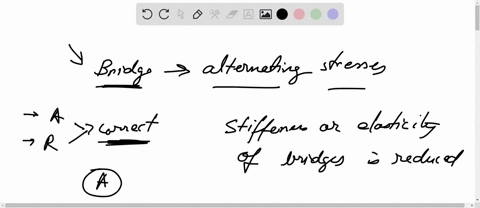 Bridge → alternating stresses
→ A
→ R
correct
Stiffness or elasticity
of bridges is reduced
A